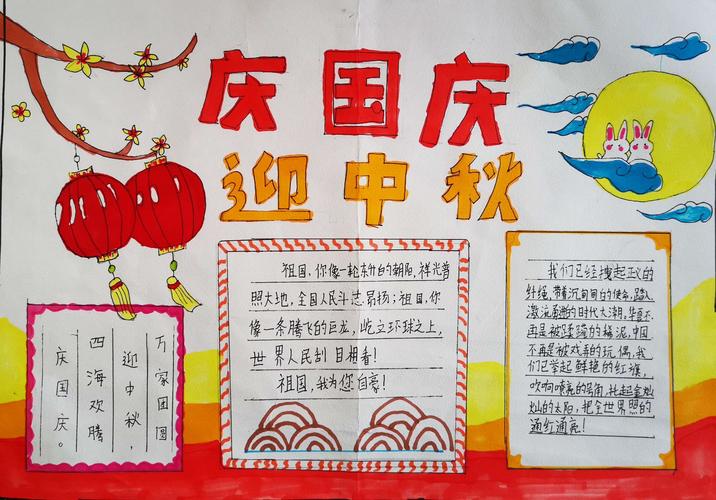 庆国庆
迎中秋
万家团圆
迎中秋,
四海欢腾
庆国庆。
祖国,你像一轮东升的朝阳,祥光普
照大地,全国人民斗志昂扬;祖国,你
像一条腾飞的巨龙,屹立环球之上,
世界人民刮目相看!
祖国,我为您自豪!
我们已经起正义的
纤绳,带着沉甸甸的使命,踏入
激流勇进的时代大潮,华夏不
再是被蹂躏的稀泥,中国
不再是被戏弄的玩偶,我
们已举起鲜艳的红旗,
吹响嘹亮的号角,托起金灿
灿的太阳,把全世界照的
通红通亮!